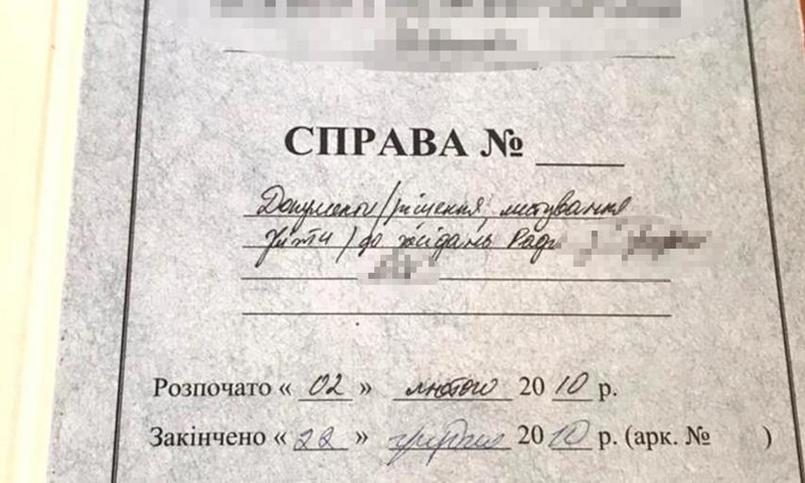 СПРАВА № ____
Документи /рішення, листування
звіти / до засідань Ради
Розпочато « 02 » лютого 2010 р.
Закінчено « 22 » грудня 2010 р. (арк. № )